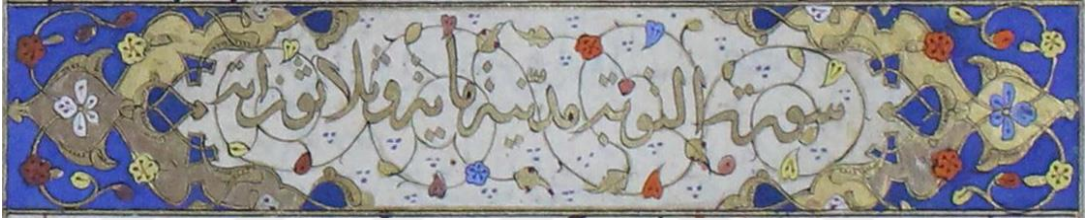 سورة التوبة مدنية مایة وثلاثون اية